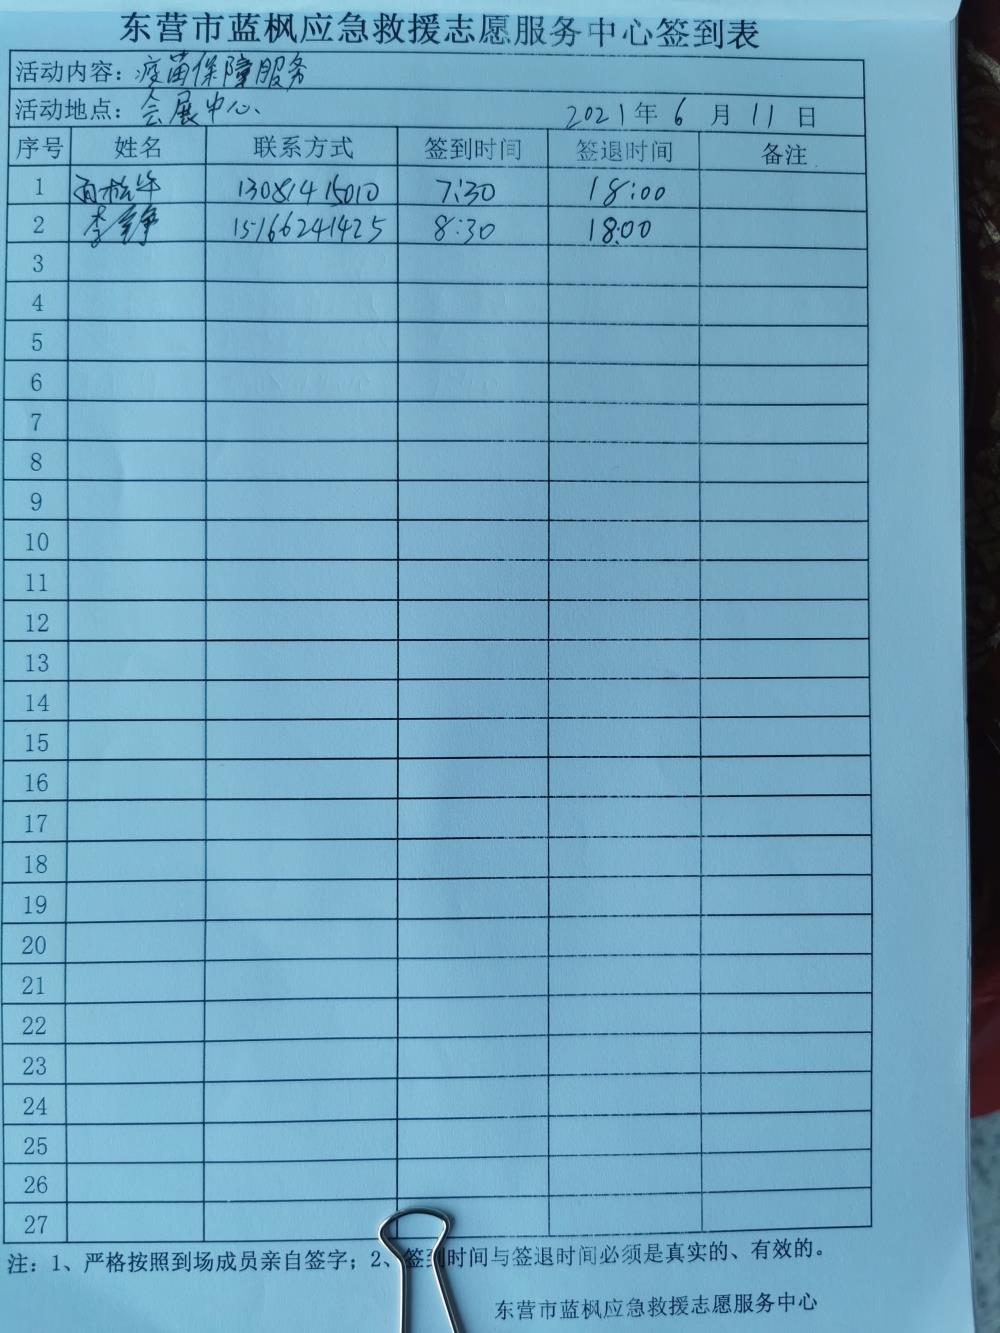 东营市蓝枫应急救援志愿服务中心签到表
活动内容：疫苗保障服务
活动地点：会展中心、 2021年 6 月 11 日
序号 姓名 联系方式 签到时间 签退时间 备注
1 13081415010 7:30 18:00
2 李 15166241425 8:30 18:00
3
4
5
6
7
8
9
10
11
12
13
14
15
16
17
18
19
20
21
22
23
24
25
26
27
注：1、严格按照到场成员亲自签字；2、签到时间与签退时间必须是真实的、有效的。
东营市蓝枫应急救援志愿服务中心